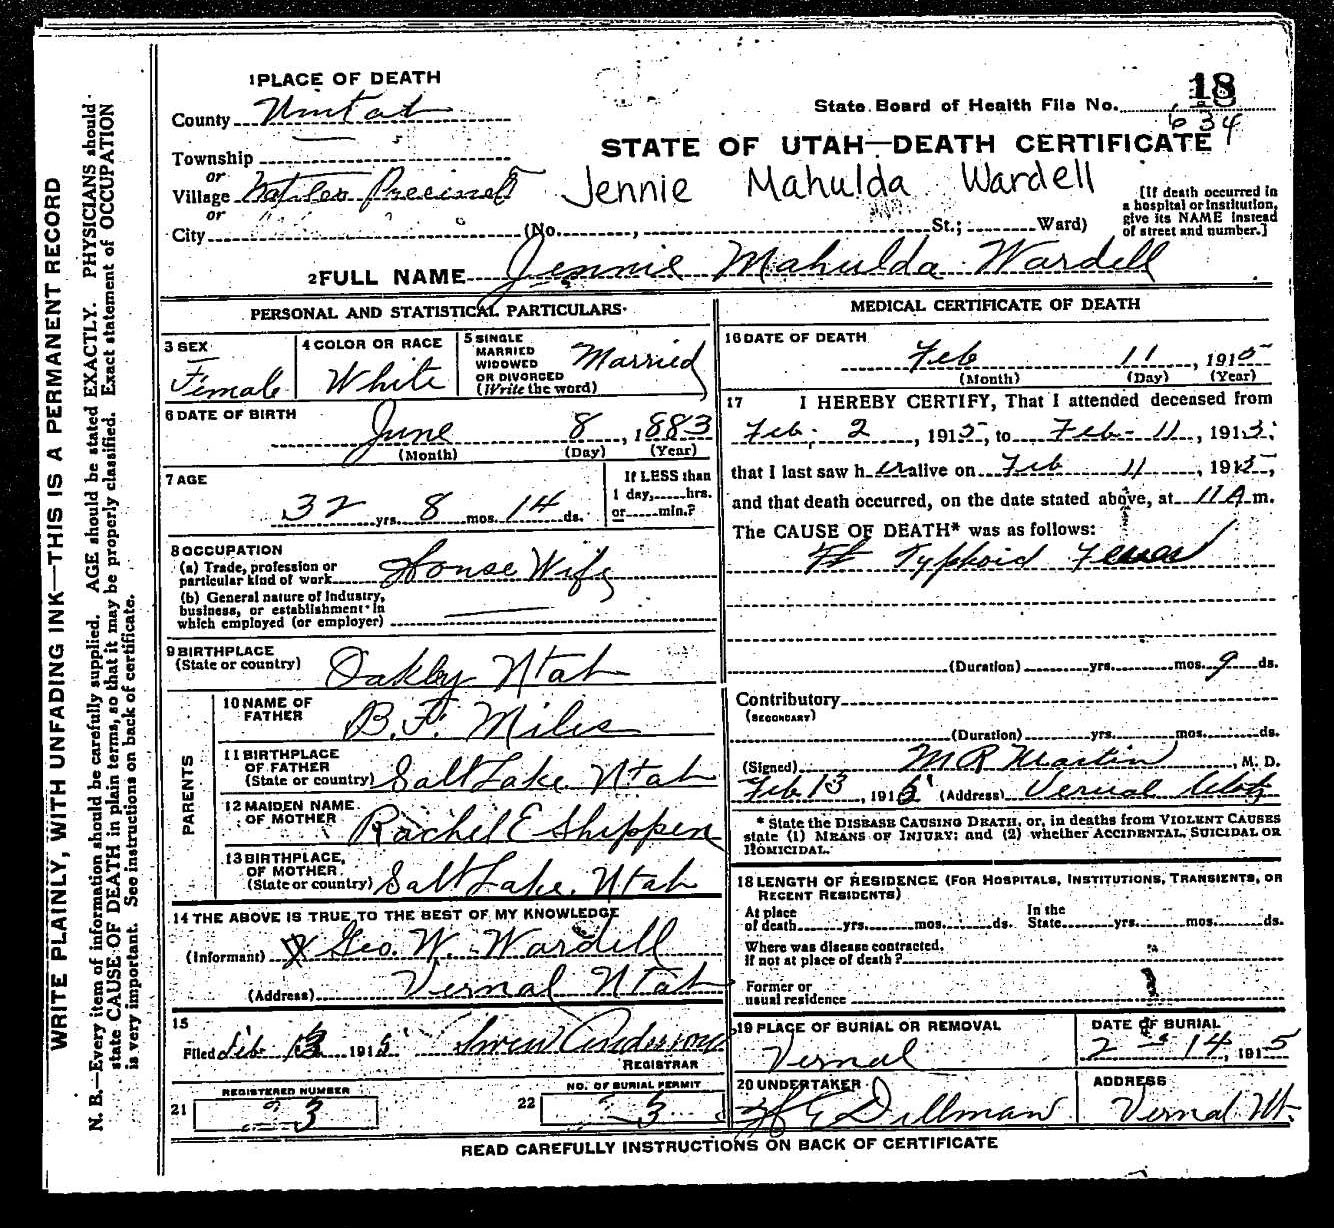 1 PLACE OF DEATH
County
State Board of Health File No. 18
634
STATE OF UTAH—DEATH CERTIFICATE
Township
or
Village Precinct
Jennie Mahulda Wardell
or
City (No. , St.; Ward)
[If death occurred in
a hospital or institution,
give its NAME instead
of street and number.]
2 FULL NAME Jennie Mahulda Wardell
PERSONAL AND STATISTICAL PARTICULARS
3 SEX
Female
4 COLOR OR RACE
White
5 SINGLE
MARRIED
WIDOWED
OR DIVORCED
(Write the word)
Married
6 DATE OF BIRTH
June 8, 1883
(Month) (Day) (Year)
7 AGE
32 yrs. 8 mos. 14 ds.
If LESS than
1 day, hrs.
or min.?
8 OCCUPATION
(a) Trade, profession or
particular kind of work House Wife
(b) General nature of industry,
business, or establishment in
which employed (or employer)
9 BIRTHPLACE
(State or country) Oakley Utah
PARENTS
10 NAME OF
FATHER B. F. Miles
11 BIRTHPLACE
OF FATHER
(State or country) Salt Lake Utah
12 MAIDEN NAME
OF MOTHER Rachel E Shippen
13 BIRTHPLACE,
OF MOTHER
(State or country) Salt Lake, Utah
14 THE ABOVE IS TRUE TO THE BEST OF MY KNOWLEDGE
(Informant) X Geo. W. Wardell
(Address) Vernal Utah
15
Filed Feb 13 1915 Anderson
REGISTRAR
REGISTERED NUMBER
21 3
NO. OF BURIAL PERMIT
22 3
MEDICAL CERTIFICATE OF DEATH
16 DATE OF DEATH
Feb 11, 1915
(Month) (Day) (Year)
17 I HEREBY CERTIFY, That I attended deceased from
Feb. 2, 1915, to Feb-11, 1915,
that I last saw her alive on Feb 11, 1915,
and that death occurred, on the date stated above, at 11 A m.
The CAUSE OF DEATH* was as follows:
Typhoid Fever
(Duration) yrs. mos. 9 ds.
Contributory
(SECONDARY)
(Duration) yrs. mos. ds.
(Signed) M R Martin, M. D.
Feb 13, 1915 (Address) Vernal Utah
* State the DISEASE CAUSING DEATH, or, in deaths from VIOLENT CAUSES
state (1) MEANS OF INJURY; and (2) whether ACCIDENTAL, SUICIDAL OR
HOMICIDAL.
18 LENGTH OF RESIDENCE (FOR HOSPITALS, INSTITUTIONS, TRANSIENTS, OR
RECENT RESIDENTS)
At place
of death yrs. mos. ds.
In the
State yrs. mos. ds.
Where was disease contracted,
if not at place of death?
Former or
usual residence
19 PLACE OF BURIAL OR REMOVAL
Vernal
DATE OF BURIAL
2 - 14, 1915
20 UNDERTAKER
Dillman
ADDRESS
Vernal Ut.
READ CAREFULLY INSTRUCTIONS ON BACK OF CERTIFICATE
WRITE PLAINLY, WITH UNFADING INK—THIS IS A PERMANENT RECORD
N. B.—Every item of information should be carefully supplied. AGE should be stated EXACTLY. PHYSICIANS should
state CAUSE OF DEATH in plain terms, so that it may be properly classified. Exact statement of OCCUPATION
is very important. See instructions on back of certificate.